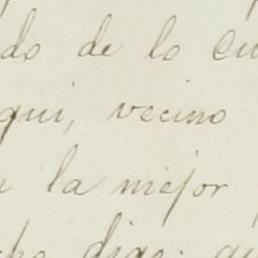 do de lo cu
qui, vecino
la mejor
che dige: qu